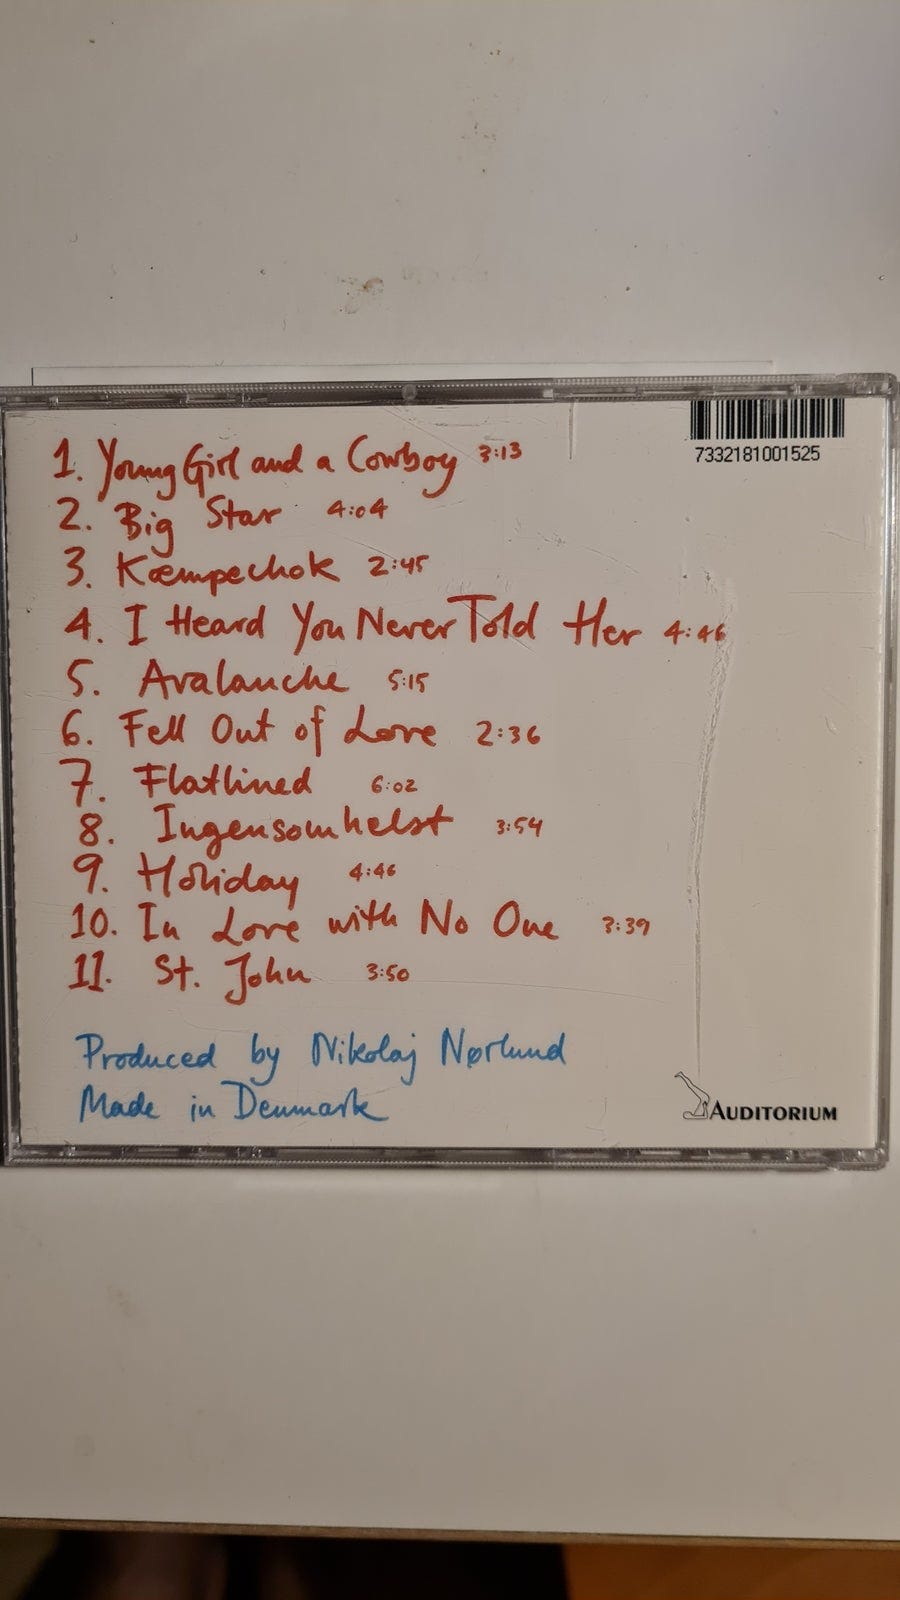 7332181001525
1. Young Girl and a Cowboy 3:13
2. Big Star 4:04
3. Kæmpechok 2:45
4. I Heard You Never Told Her 4:46
5. Avalanche 5:15
6. Fell Out of Love 2:36
7. Flatlined 6:02
8. Ingensomhelst 3:54
9. Holiday 4:46
10. In Love with No One 3:39
11. St. John 3:50
Produced by Nikolaj Nørlund
Made in Denmark
AUDITORIUM